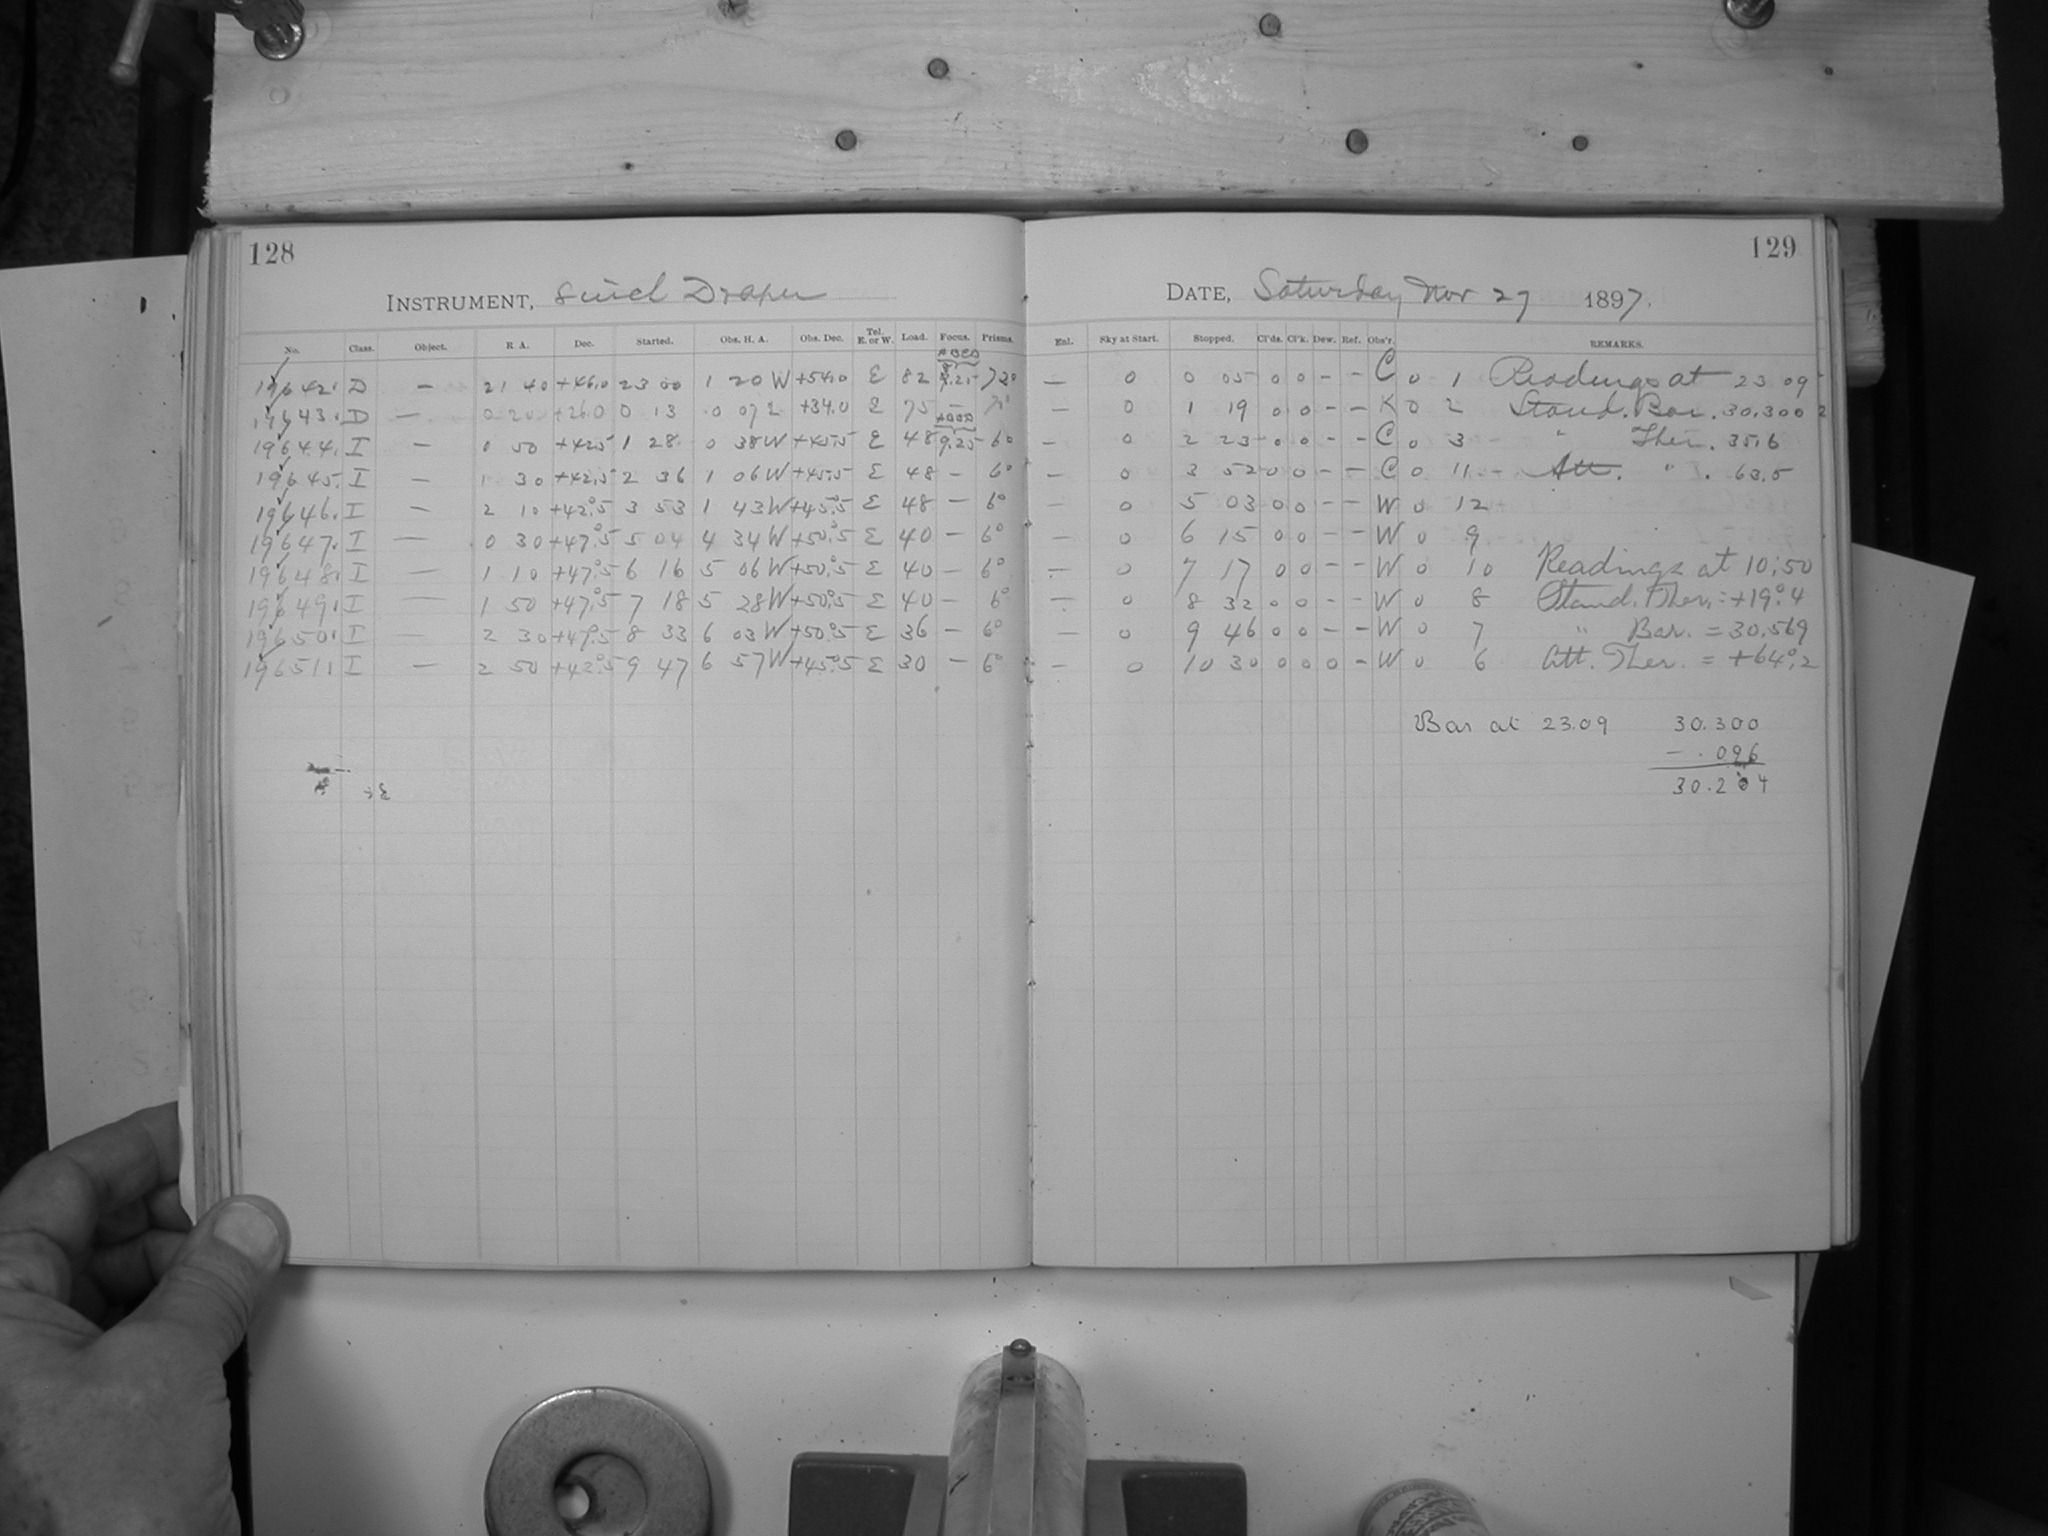 128
129
INSTRUMENT, 8 inch Draper
DATE, Saturday Nov 27 1897.
No. Class. Object. R.A. Dec. Started. Obs. H. A. Obs. Dec. Tel. E. or W. Load. Focus. Prisms. Enl. Sky at Start. Stopped. Cl'ds. Cl'k. Dew. Ref. Obs'r. REMARKS.
ABCD
19642. D — 21 40 +46.0 23 00 1 20 W +54.0 E 82 9.25 — 0 0 05 0 0 - - C 0 1 Readings at 23 09
19643. D — 0 20 +26.0 0 13 0 07 E +34.0 E 75 — — 0 1 19 0 0 - - K 0 2 Stand. Bar. 30.300
19644. I — 0 50 +42.5 1 28 0 38 W +45.5 E 48 9.25 6° — 0 2 23 0 0 - - C 0 3 " Ther. 35.6
19645. I — 1 30 +42.5 2 36 1 06 W +45.5 E 48 — 6° — 0 3 52 0 0 - - C 0 11 Att. " . 63.5
19646. I — 2 10 +42.°5 3 53 1 43 W +45.°5 E 48 — 6° — 0 5 03 0 0 - - W 0 12
19647. I — 0 30 +47.°5 5 04 4 34 W +50.°5 E 40 — 6° — 0 6 15 0 0 - - W 0 9
19648. I — 1 10 +47.°5 6 16 5 06 W +50.°5 E 40 — 6° — 0 7 17 0 0 - - W 0 10 Readings at 10:50
19649. I — 1 50 +47.°5 7 18 5 28 W +50.°5 E 40 — 6° — 0 8 32 0 0 - - W 0 8 Stand. Ther. = +19.°4
19650. I — 2 30 +47.°5 8 33 6 03 W +50.°5 E 36 — 6° — 0 9 46 0 0 - - W 0 7 " Bar. = 30.569
19651. I — 2 50 +42.°5 9 47 6 57 W +45.°5 E 30 — 6° — 0 10 30 0 0 0 - W 0 6 Att. Ther. = +64.°2
Bar at 23.09 30.300
- .096
30.204